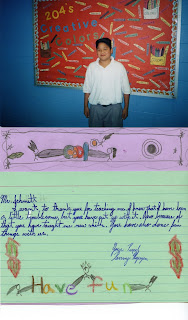 204's
Creative
Colors
Mr. Schmitt:
I want to thank you for teaching me. I know that I have been
a little troublesome, but you have put up with it. Also because of
that you have taught me new math. You have also done fun
things with us.
Yours Truly,
Have Fun